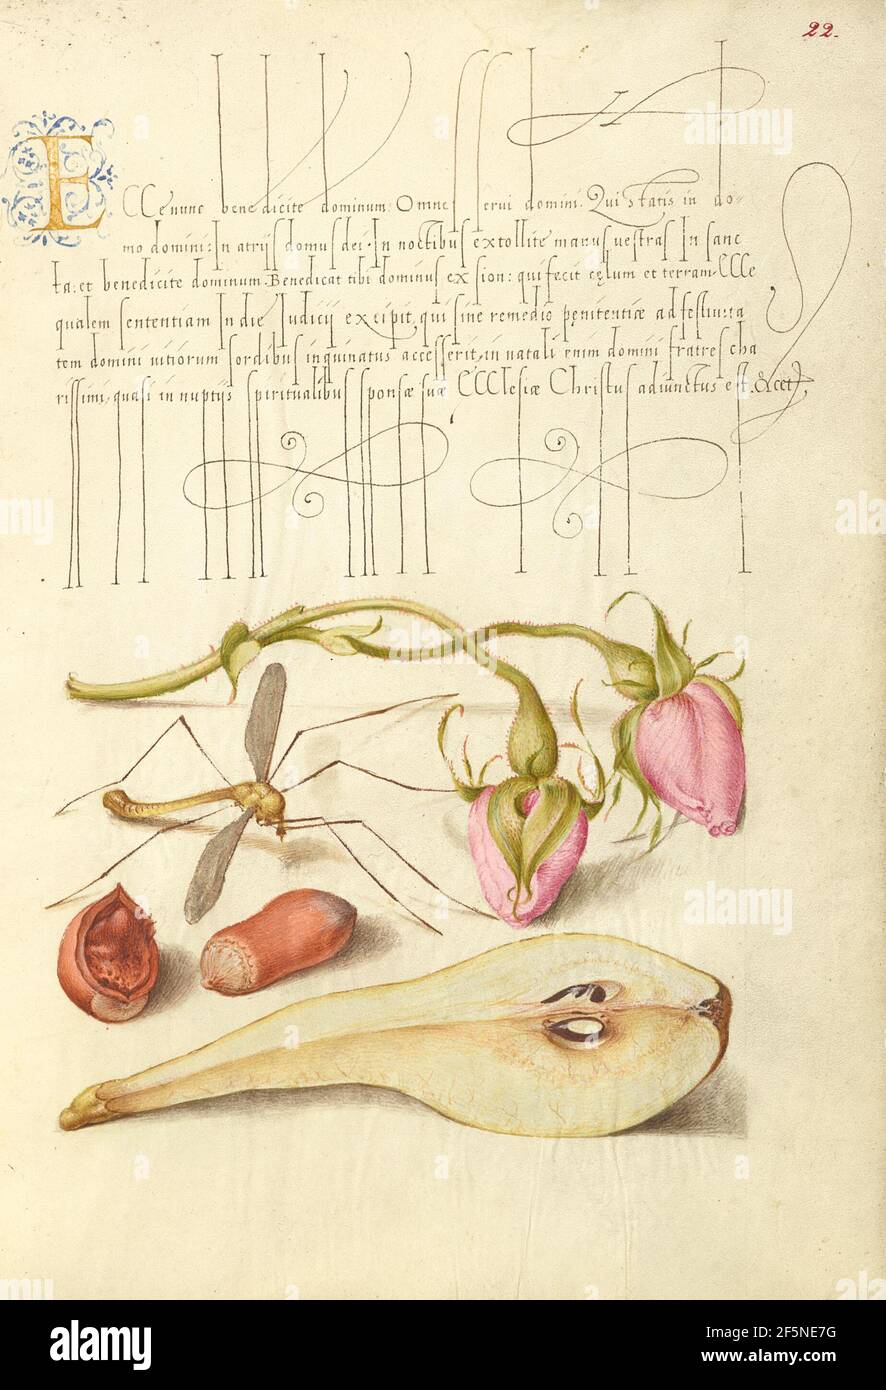 22.
ECCe nunc benedicite dominum: Omnes serui domini: Qui statis in do-
mo domini: In atrijs domus dei: In noctibus extollite manus uestras In sanc
ta: et benedicite dominum. Benedicat tibi dominus ex sion: qui fecit cęlum et terram. CCCe
qualem sententiam In die Iudicij excipit, qui sine remedio pęnitentiæ ad festiuita
tem domini uitiorum sordibus inquinatus accesserit, in natali enim domini fratres cha
rissimi, quasi in nuptijs spiritualibus sponsæ suæ ECCClesiæ Christus adiunctus est. &cet
alamy
Image ID: 2F5NE7G
www.alamy.com